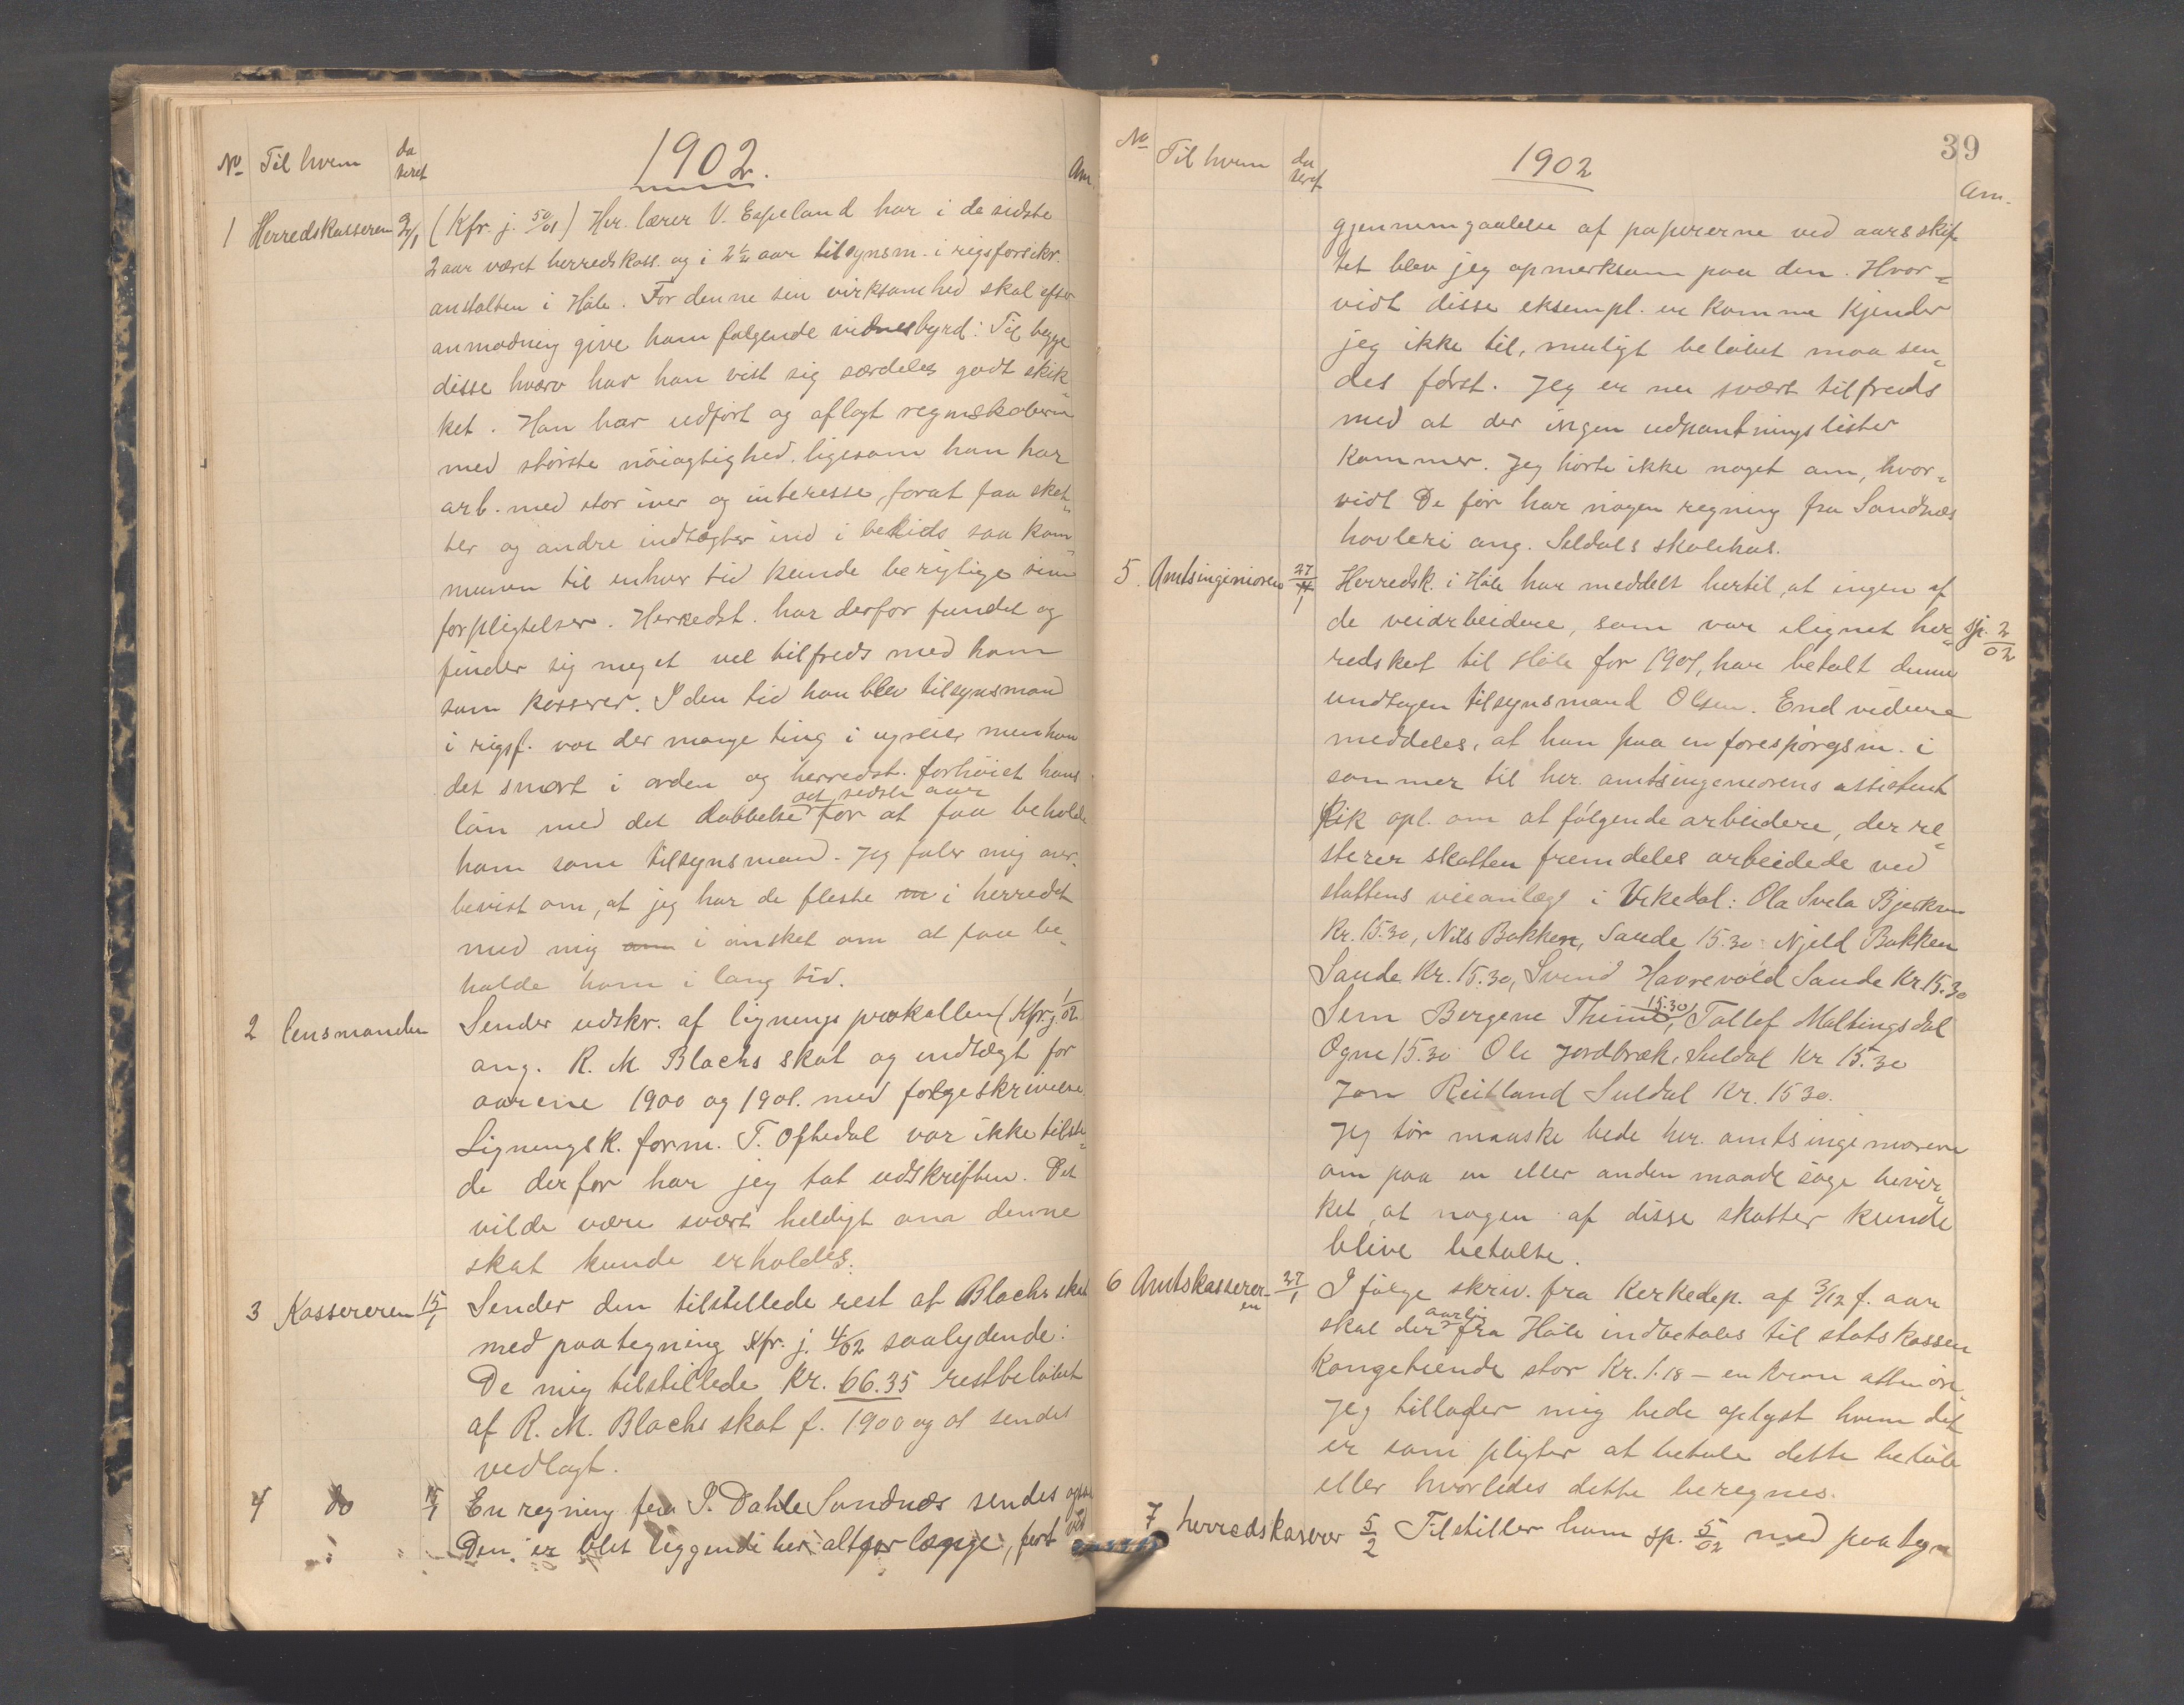 No Til hvem da teret 1902. Am.
1 Herredskasseren 2/1 (Kfr. j. 50/01) Hr. lærer V. Espeland har i de sidste
2 aar været herredskass. og i 2½ aar tilsynsm. i rigsforsikr.
anstalten i Høle. For denne sin virksomhed skal efter
anmodning give ham følgende vidnesbyrd: Til begge
disse hværv har han vist sig særdeles godt skik„
ket. Han har udført og aflagt regnskaberne
med største nöiagtighed, ligesom han har
arb. med stor iver og interesse, forat faa skat„
ter og andre indtægter ind i betids saa kom„
munen til enhver tid kunde berigtige sine
forpligtelser. Herredst. har derfor fundet og
finder sig meget vel tilfreds med ham
som kasserer. I den tid han blev tilsynsmand
i rigsf. var der mange ting i ugreie, men han
det snart i orden og herredst. forhöiet hans
lön med det dobbelte det sidste aar for at faa beholde
ham som tilsynsmand. Jeg föler mig over„
bevist om, at jeg har de fleste i herredet
med mig i önsket om at faa be„
holde ham i lang tid.
2 lensmanden Sender udskr. af ligningsprokollen (Kfr. j. 1/02
ang. R. M. Blachs skat og indtægt for
aarene 1900 og 1901. med følgeskrivelse.
Ligningsk. form. T. Oftedal var ikke tilste„
de derfor har jeg tat udskriften. Det
vilde være svært heldigt om denne
skat kunde erholdes.
3 Kassereren 15/1 Sender den tilstillede rest af Blachs skat
med paategning kfr. j. 4/02 saalydende:
De mig tilstillede Kr. 66.35 restbelöbet
af R. M. Blachs skat f. 1900 og 01 sendes
vedlagt.
4 do 15/1 En regning fra P. Dahle Sandnæs sendes ogsaa
Den er blet liggende her altfor længe, först ved
39
No Til hvem da teret 1902 Am.
gjennemgaaelse af papirerne ved aarsskif„
tet blev jeg opmerksom paa den. Hvor„
vidt disse eksempl. er komne kjender
jeg ikke til, muligt belöbet maa sen„
des først. Jeg er nu svært tilfreds
med at der ingen udpantningslister
kommer. Jeg hörte ikke noget om, hvor„
vidt De för har nogen regning fra Sandnæs
hövleri ang. Seldals skolehus.
5. Amtsingeniøren 27/1 Herredsk. i Høle har meddelt hertil, at ingen af
de veiarbeidere, som var ilignet her„ sp. 2/02
redskat til Høle for 1901, har betalt denne
undtagen tilsynsmand Olsen. End videre
meddeles, at han paa en forespörgsm. i
sommer til hr. amtsingeniørens assistent
fik opl. om at følgende arbeidere, der re„
sterer skatten fremdeles arbeidede ved
stattens veianlæg i Vikedal: Ola Svela Bjerkrem
Kr. 15.30, Nils Bakken, Sande 15.30. Njeld Bakken
Sande Kr. 15.30, Svend Havrevold Sande Kr. 15.30
Sem Bergene Thime 15.30, Tollef Maltingsdal
Ogne 15.30 Ole Jordbræk, Suldal Kr 15.30
Jon Reitland Suldal Kr. 15 30.
Jeg tör maaske bede hr. amtsingeniøren
om paa en eller anden maade søge bevir„
ket, at nogen af disse skatter kunde
blive betalte.
6 Amtskassereren 27/1 I følge skriv. fra Kirkedep. af 3/12 f. aar
skal der aarlig fra Høle indbetales til statskassen
Kongetiende stor Kr. 1.18 – en krone atten öre.
Jeg tillader mig bede oplyst hvem det
er som pligter at betale dette belöb
eller hvorledes dette beregnes.
7 herredskaserer 5/2 Tilstiller ham sp. 5/02 med paa tegn